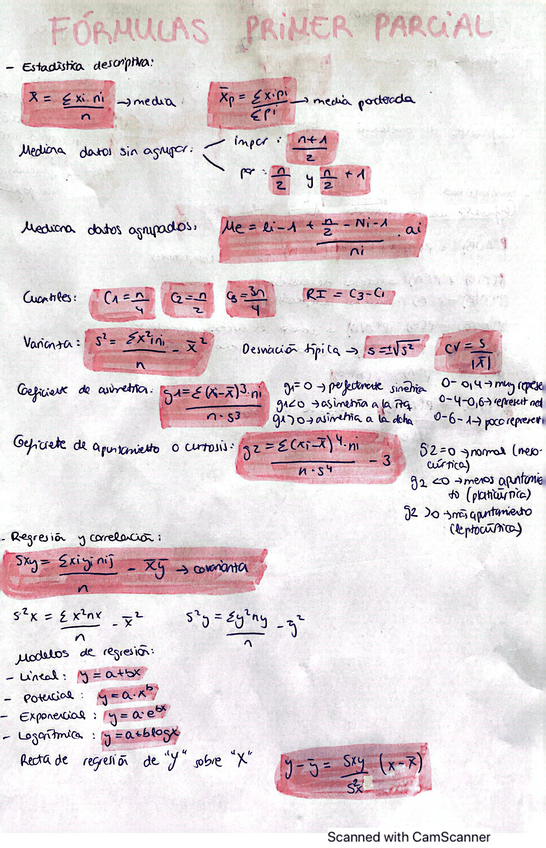 FÓRMULAS PRIMER PARCIAL
- Estadística descriptiva:
x̄ = Σxi·ni / n → media
x̄p = Σxi·pi / Σpi → media ponderada
Mediana datos sin agrupar:
impar: n+1 / 2
par: n/2 y n/2 + 1
Mediana datos agrupados: Me = li-1 + n/2 - Ni-1 / ni · ai
Cuartiles: C1 = n/4 C2 = n/2 C3 = 3n/4 RI = C3 - C1
Varianza: s² = Σx²ini / n - x̄² Desviación típica → s = ±√s² CV = s / |x̄|
Coeficiente de asimetría: g1 = Σ(xi-x̄)³·ni / n·s³
g1 = 0 → perfectamente simétrica
g1 < 0 → asimetría a la izq
g1 > 0 → asimetría a la dcha
0-0,4 → muy repese
0-4-0,6 → represent
0-6-1 → poco represent
Coeficiente de apuntamiento o curtosis: g2 = Σ(xi-x̄)⁴·ni / n·s⁴ - 3
g2 = 0 → normal (meso-
cúrtica)
g2 < 0 → menos apuntamie
to (platicúrtica)
g2 > 0 → más apuntamiento
(leptocúrtica)
- Regresión y correlación:
Sxy = Σxiyjnij / n - x̄ȳ → covarianza
s²x = Σx²nx / n - x̄² s²y = Σy²ny / n - ȳ²
Modelos de regresión:
- Lineal: y = a+bx
- Potencial: y = a·x^b
- Exponencial: y = a·e^bx
- Logarítmica: y = a+blogx
Recta de regresión de "Y" sobre "X" y-ȳ = Sxy / S²x (x-x̄)
Scanned with CamScanner